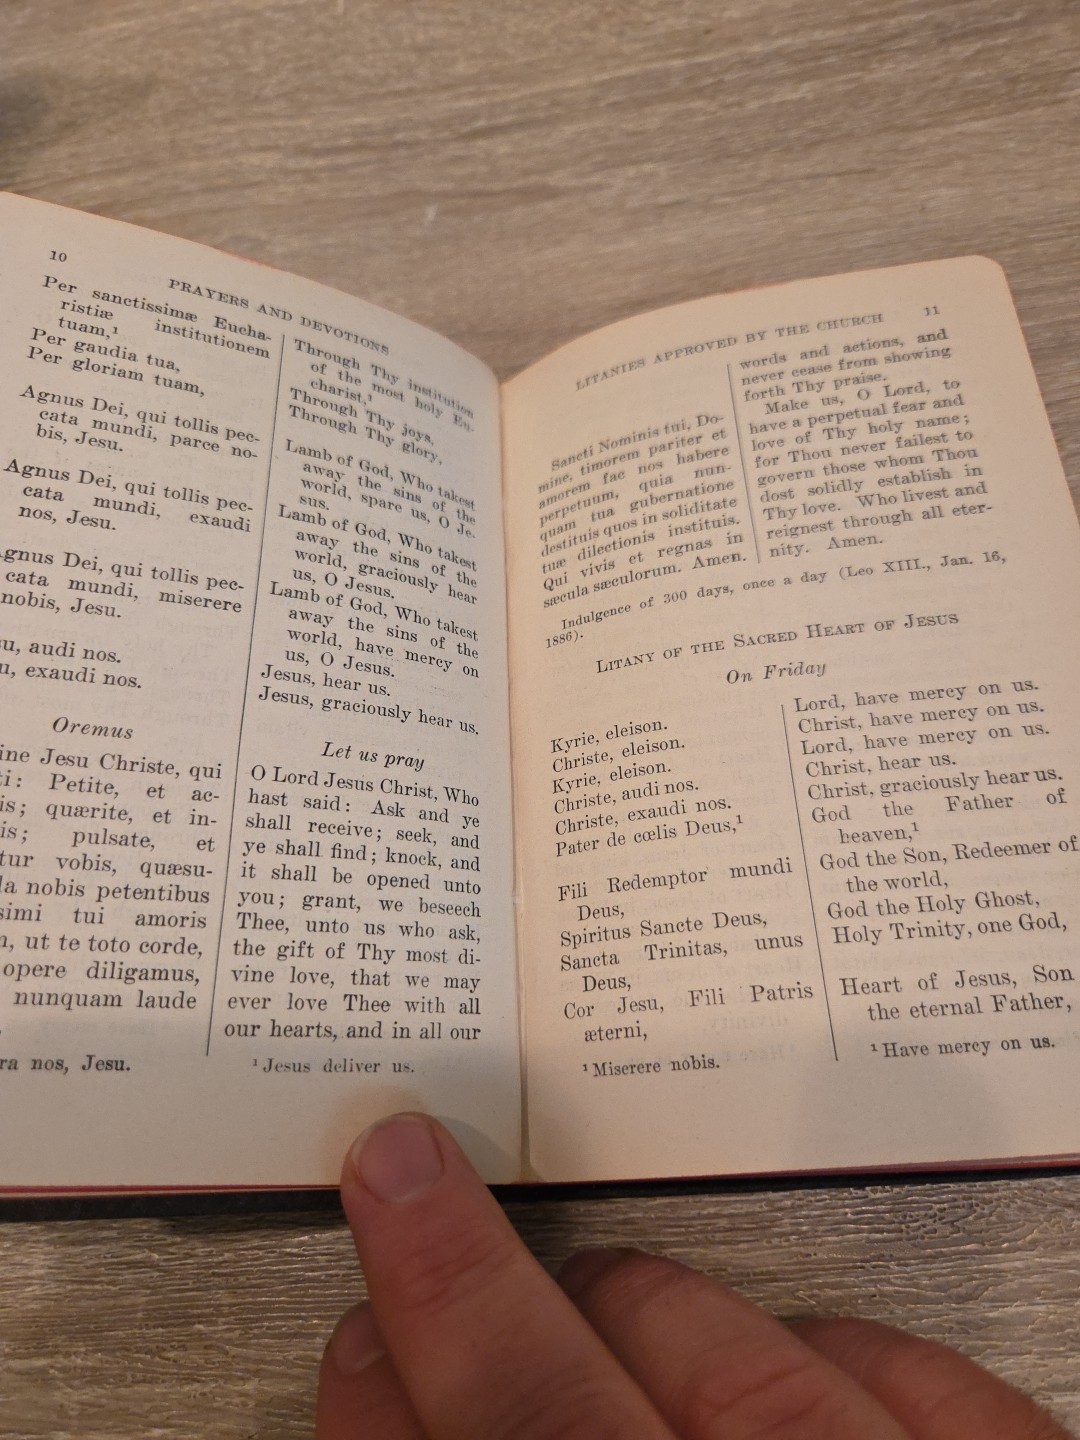 10
PRAYERS AND DEVOTIONS
Per sanctissimæ Eucha-
ristiæ institutionem
tuam,¹
Per gaudia tua,
Per gloriam tuam,
Agnus Dei, qui tollis pec-
cata mundi, parce no-
bis, Jesu.
Agnus Dei, qui tollis pec-
cata mundi, exaudi
nos, Jesu.
gnus Dei, qui tollis pec-
cata mundi, miserere
nobis, Jesu.
u, audi nos.
u, exaudi nos.
Oremus
ine Jesu Christe, qui
ti: Petite, et ac-
is; quærite, et in-
is; pulsate, et
tur vobis, quæsu-
la nobis petentibus
simi tui amoris
n, ut te toto corde,
opere diligamus,
nunquam laude
ra nos, Jesu.
Through Thy institution
of the most holy Eu-
charist,¹
Through Thy joys,
Through Thy glory,
Lamb of God, Who takest
away the sins of the
world, spare us, O Je-
sus.
Lamb of God, Who takest
away the sins of the
world, graciously hear
us, O Jesus.
Lamb of God, Who takest
away the sins of the
world, have mercy on
us, O Jesus.
Jesus, hear us.
Jesus, graciously hear us.
Let us pray
O Lord Jesus Christ, Who
hast said: Ask and ye
shall receive; seek, and
ye shall find; knock, and
it shall be opened unto
you; grant, we beseech
Thee, unto us who ask,
the gift of Thy most di-
vine love, that we may
ever love Thee with all
our hearts, and in all our
¹ Jesus deliver us.
LITANIES APPROVED BY THE CHURCH
11
Sancti Nominis tui, Do-
mine, timorem pariter et
amorem fac nos habere
perpetuum, quia nun-
quam tua gubernatione
destituis quos in soliditate
tuæ dilectionis instituis.
Qui vivis et regnas in
sæcula sæculorum. Amen.
words and actions, and
never cease from showing
forth Thy praise.
Make us, O Lord, to
have a perpetual fear and
love of Thy holy name;
for Thou never failest to
govern those whom Thou
dost solidly establish in
Thy love. Who livest and
reignest through all eter-
nity. Amen.
Indulgence of 300 days, once a day (Leo XIII., Jan. 16,
1886).
LITANY OF THE SACRED HEART OF JESUS
On Friday
Kyrie, eleison.
Christe, eleison.
Kyrie, eleison.
Christe, audi nos.
Christe, exaudi nos.
Pater de cœlis Deus,¹
Fili Redemptor mundi
Deus,
Spiritus Sancte Deus,
Sancta Trinitas, unus
Deus,
Cor Jesu, Fili Patris
æterni,
¹ Miserere nobis.
Lord, have mercy on us.
Christ, have mercy on us.
Lord, have mercy on us.
Christ, hear us.
Christ, graciously hear us.
God the Father of
heaven,¹
God the Son, Redeemer of
the world,
God the Holy Ghost,
Holy Trinity, one God,
Heart of Jesus, Son
the eternal Father,
¹ Have mercy on us.